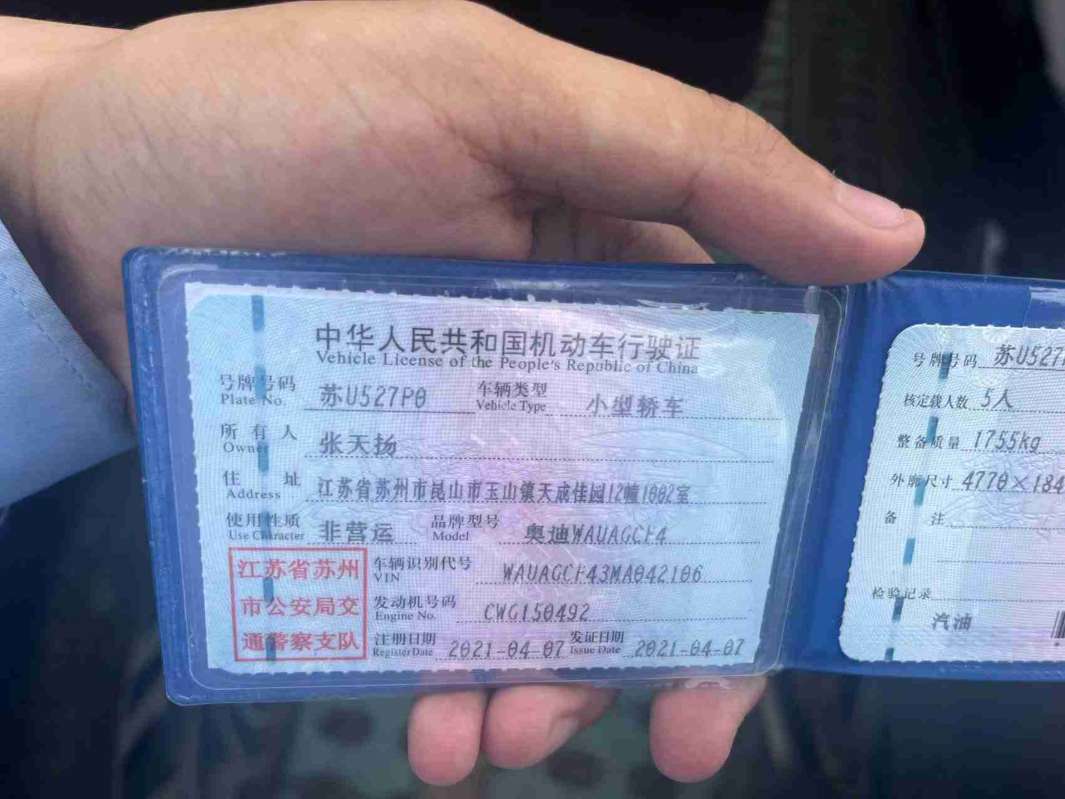 中华人民共和国机动车行驶证
Vehicle License of the People's Republic of China
号牌号码 苏U527P0 车辆类型 小型轿车
Plate No. Vehicle Type
所有人 张天扬
Owner
住址 江苏省苏州市昆山市玉山镇天成佳园12幢1002室
Address
使用性质 非营运 品牌型号 奥迪WAUAGCF4
Use Character Model
江苏省苏州
市公安局交
通警察支队
车辆识别代号 WAUAGCF43MA042106
VIN
发动机号码 CWG150492
Engine No.
注册日期 2021-04-07 发证日期 2021-04-07
Register Date Issue Date
号牌号码 苏U527
核定载人数 5人
整备质量 1755kg
外廓尺寸 4770×184
备注
检验记录
汽油